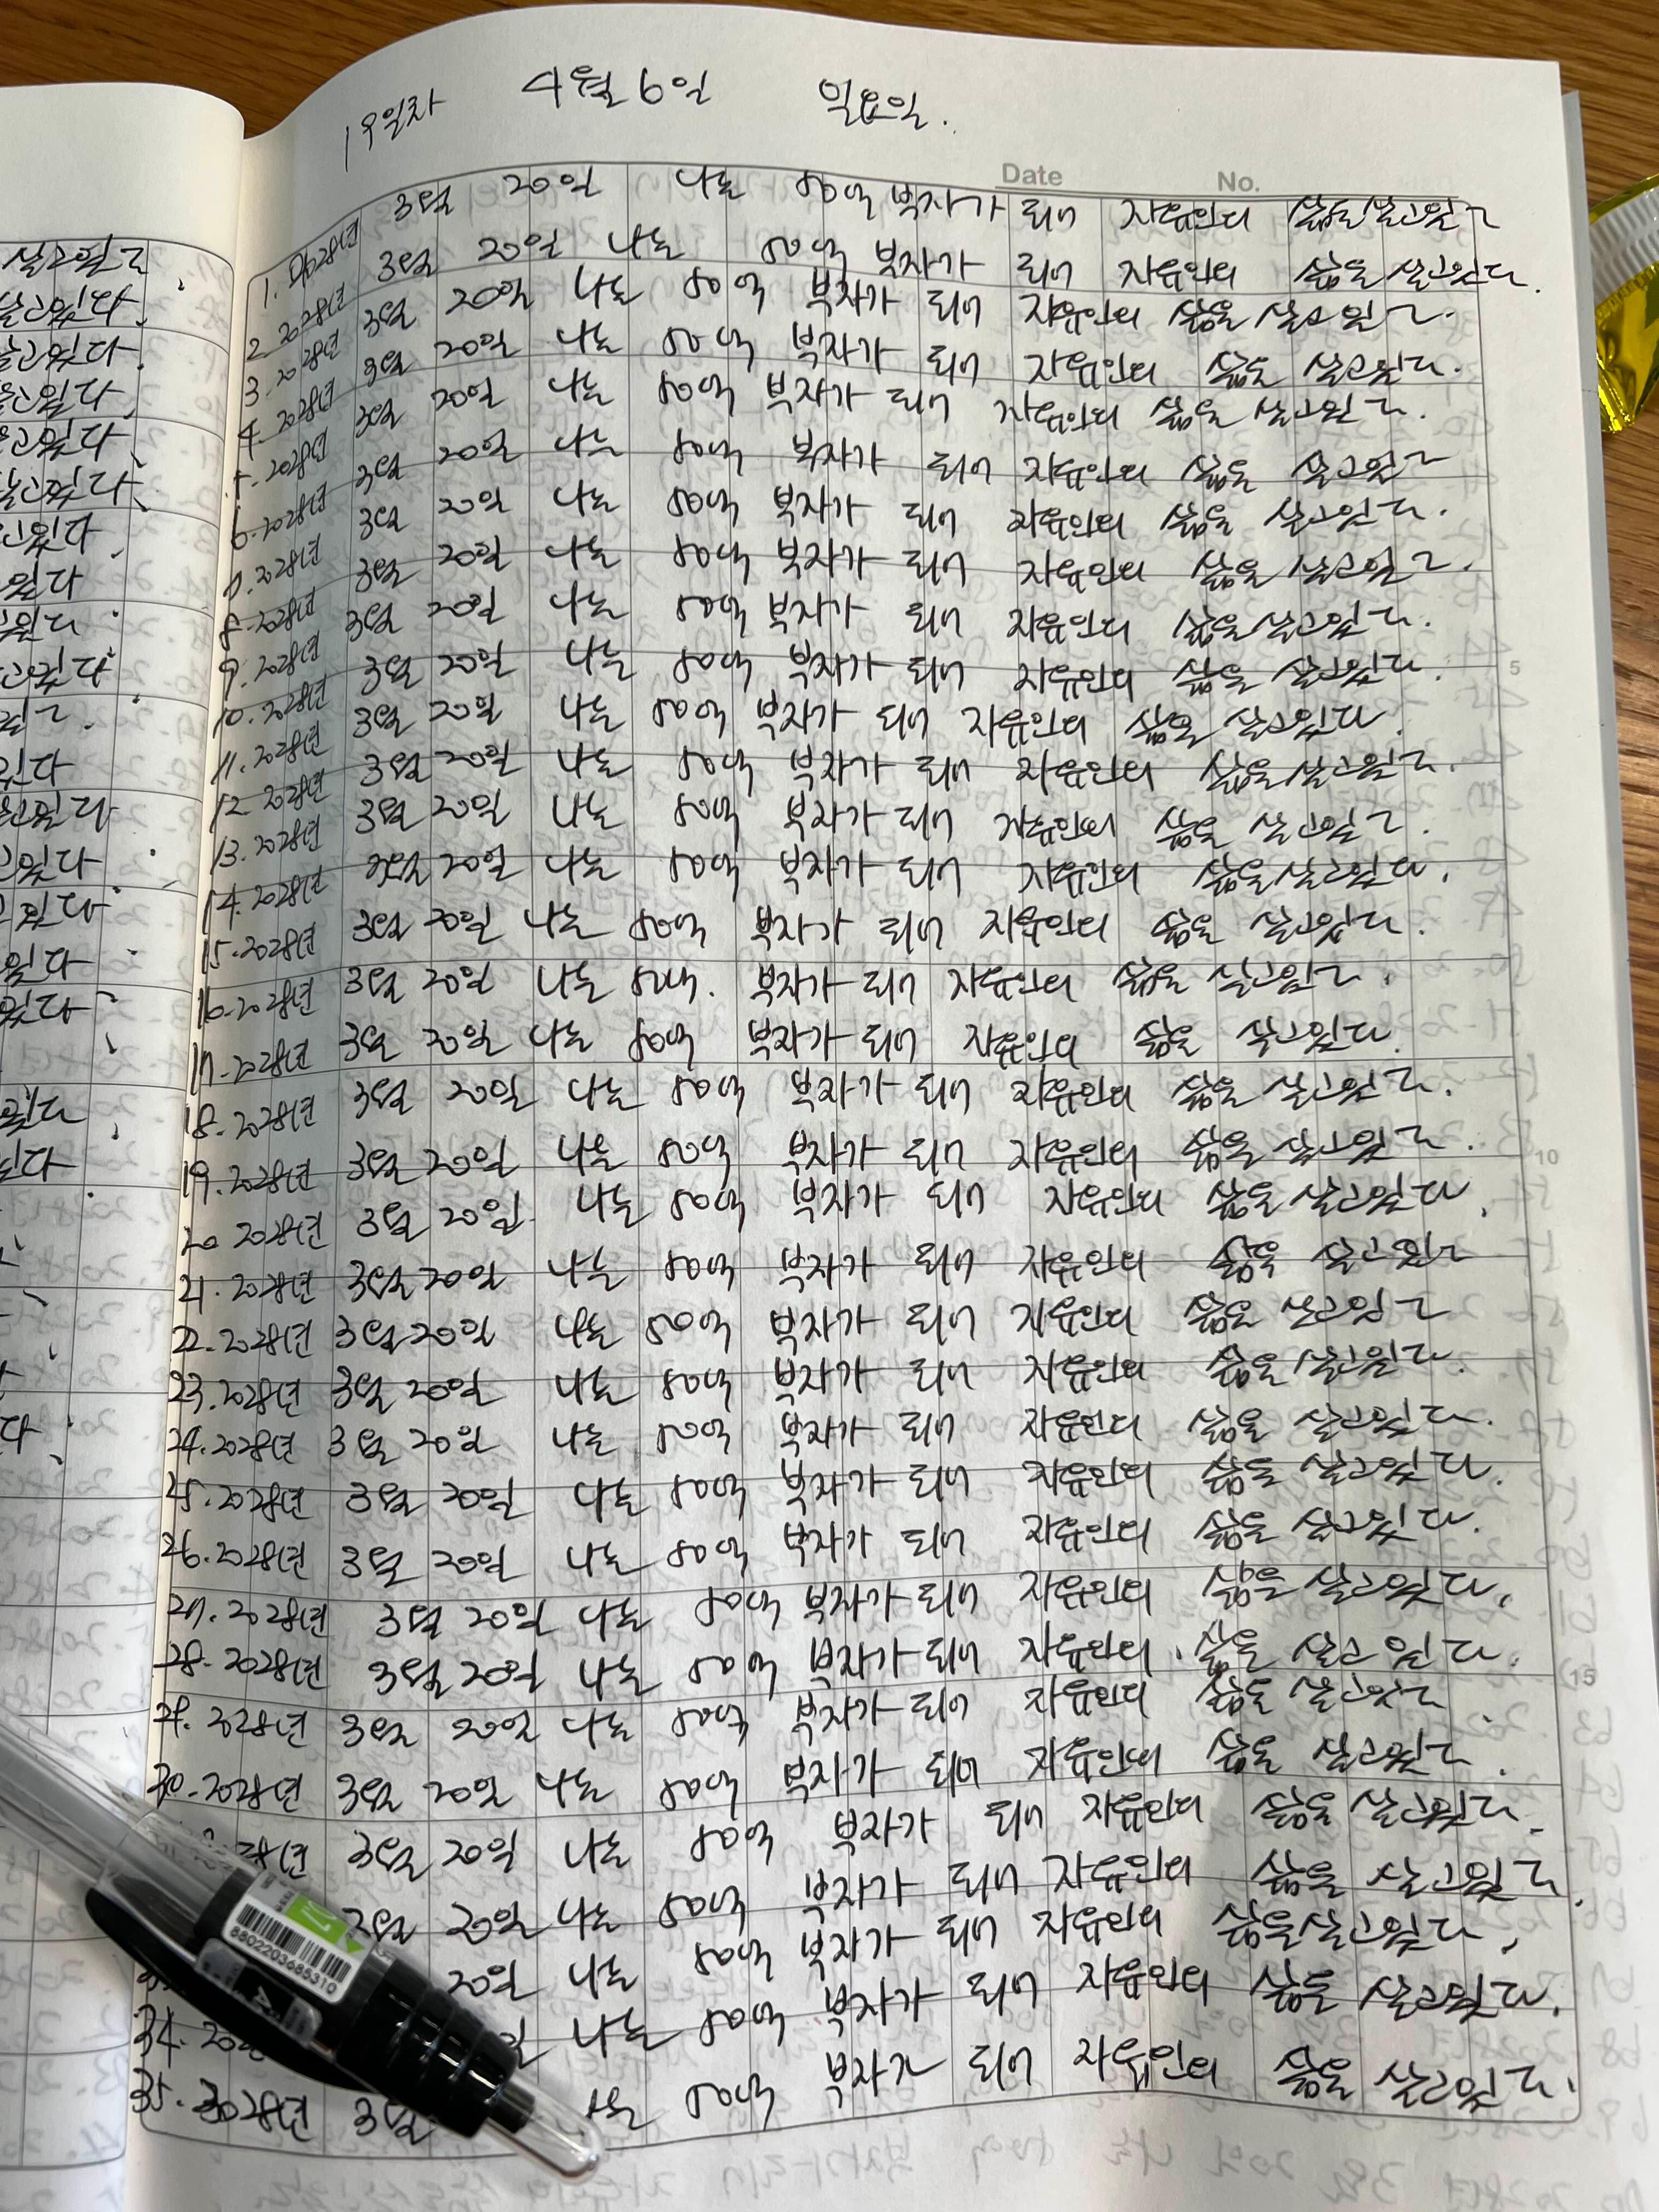 19일차 4월 6일 일요일.
Date No.
1. 2028년 3월 20일 나는 80억 부자가 되어 자유인의 삶을 살고있다
2. 2028년 3월 20일 나는 80억 부자가 되어 자유인의 삶을 살고있다.
3. 2028년 3월 20일 나는 80억 부자가 되어 자유인의 삶을 살고있다.
4. 2028년 3월 20일 나는 80억 부자가 되어 자유인의 삶을 살고있다.
5. 2028년 3월 20일 나는 80억 부자가 되어 자유인의 삶을 살고있다.
6. 2028년 3월 20일 나는 80억 부자가 되어 자유인의 삶을 살고있다
7. 2028년 3월 20일 나는 80억 부자가 되어 자유인의 삶을 살고있다.
8. 2028년 3월 20일 나는 80억 부자가 되어 자유인의 삶을 살고있다.
9. 2028년 3월 20일 나는 80억 부자가 되어 자유인의 삶을 살고있다.
10. 2028년 3월 20일 나는 80억 부자가 되어 자유인의 삶을 살고있다.
11. 2028년 3월 20일 나는 80억 부자가 되어 자유인의 삶을 살고있다.
12. 2028년 3월 20일 나는 80억 부자가 되어 자유인의 삶을 살고있다.
13. 2028년 3월 20일 나는 80억 부자가 되어 자유인의 삶을 살고있다.
14. 2028년 3월 20일 나는 80억 부자가 되어 자유인의 삶을 살고있다.
15. 2028년 3월 20일 나는 80억 부자가 되어 자유인의 삶을 살고있다.
16. 2028년 3월 20일 나는 80억. 부자가 되어 자유인의 삶을 살고있다.
17. 2028년 3월 20일 나는 80억 부자가 되어 자유인의 삶을 살고있다.
18. 2028년 3월 20일 나는 80억 부자가 되어 자유인의 삶을 살고있다.
19. 2028년 3월 20일 나는 80억 부자가 되어 자유인의 삶을 살고있다.
20. 2028년 3월 20일. 나는 80억 부자가 되어 자유인의 삶을 살고있다.
21. 2028년 3월 20일 나는 80억 부자가 되어 자유인의 삶을 살고있다
22. 2028년 3월 20일 나는 80억 부자가 되어 자유인의 삶을 살고있다
23. 2028년 3월 20일 나는 80억 부자가 되어 자유인의 삶을 살고있다.
24. 2028년 3월 20일 나는 80억 부자가 되어 자유인의 삶을 살고있다.
25. 2028년 3월 20일 나는 80억 부자가 되어 자유인의 삶을 살고있다.
26. 2028년 3월 20일 나는 80억 부자가 되어 자유인의 삶을 살고있다.
27. 2028년 3월 20일 나는 80억 부자가 되어 자유인의 삶을 살고있다.
28. 2028년 3월 20일 나는 80억 부자가 되어 자유인의 삶을 살고있다.
29. 2028년 3월 20일 나는 80억 부자가 되어 자유인의 삶을 살고있다.
30. 2028년 3월 20일 나는 80억 부자가 되어 자유인의 삶을 살고있다.
28년 3월 20일 나는 80억 부자가 되어 자유인의 삶을 살고있다.
3월 20일 나는 80억 부자가 되어 자유인의 삶을 살고있다.
20일 나는 80억 부자가 되어 자유인의 삶을 살고있다.
34. 나는 80억 부자가 되어 자유인의 삶을 살고있다.
35. 2028년 3월 나는 80억 부자가 되어 자유인의 삶을 살고있다.
5
10
15
8802203685310